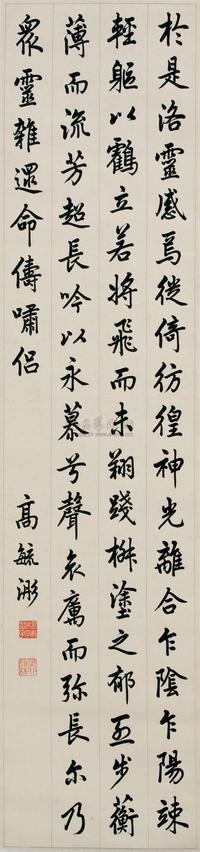 於是洛靈感焉徙倚彷徨神光離合乍陰乍陽竦
輕軀以鶴立若將飛而未翔踐椒塗之郁烈步蘅
薄而流芳超長吟以永慕兮聲哀厲而弥長尔乃
眾靈雜遝命儔嘯侶
高毓浵